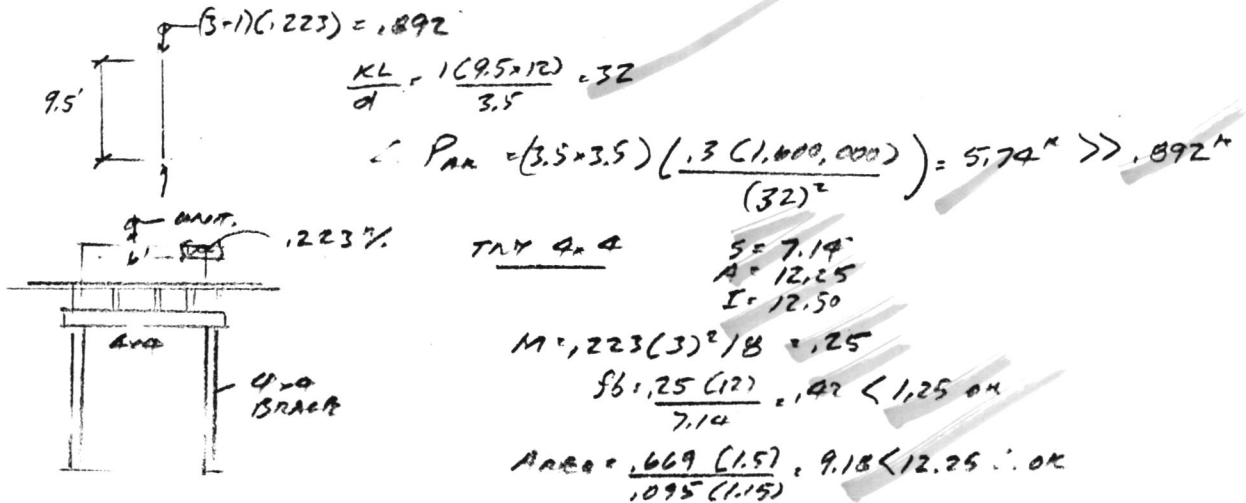 (3+1)(.223) = .892
9.5'
KL/d = 1(9.5×12)/3.5 = 32
∴ PAll = (3.5×3.5)(.3(1,600,000)/(32)²) = 5.74ᴷ >> .892ᴷ
.223 ᴷ/'
TRY 4x4
S = 7.14
A = 12.25
I = 12.50
4x4
M = .223(3)²/8 = .25
4x4
BRACE
fb = .25(12)/7.14 = .42 < 1.25 OK
AREQ = .669(1.5)/.095(1.15) = 9.18 < 12.25 ∴ OK